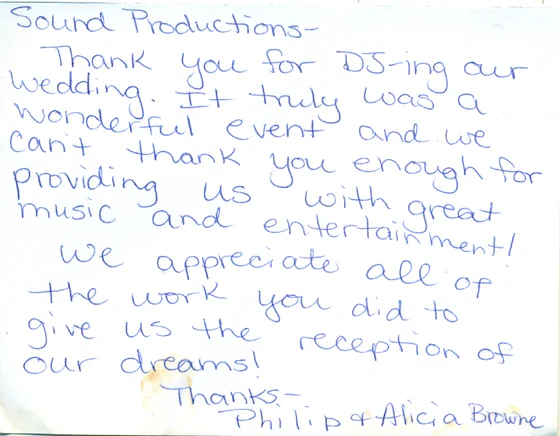 Sound Productions-
Thank you for DJ-ing our
wedding. It truly was a
wonderful event and we
can't thank you enough for
providing us with great
music and entertainment!
We appreciate all of
the work you did to
give us the reception of
our dreams!
Thanks-
Philip & Alicia Browne